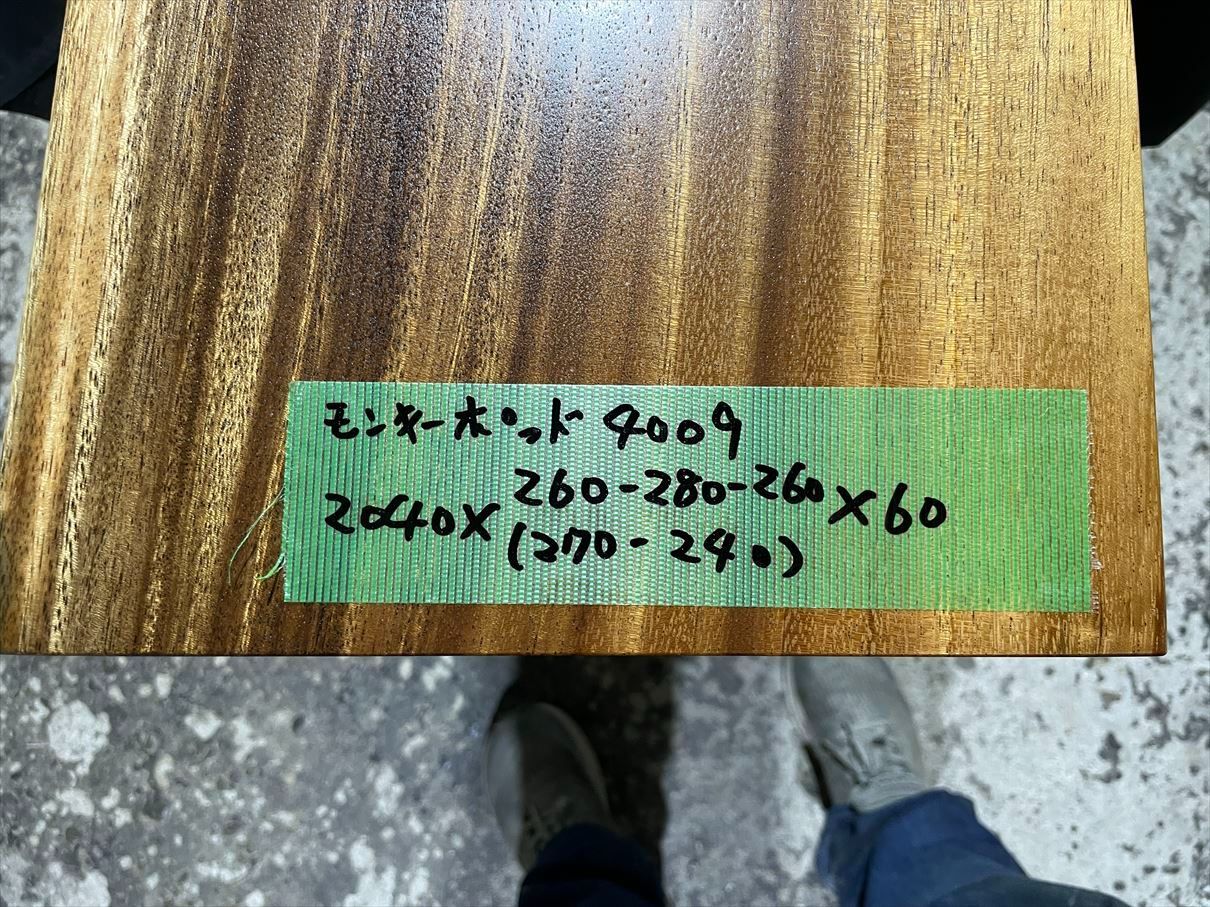 モンキーポッド 4009
260-280-260
2040× ×60
(270-240)